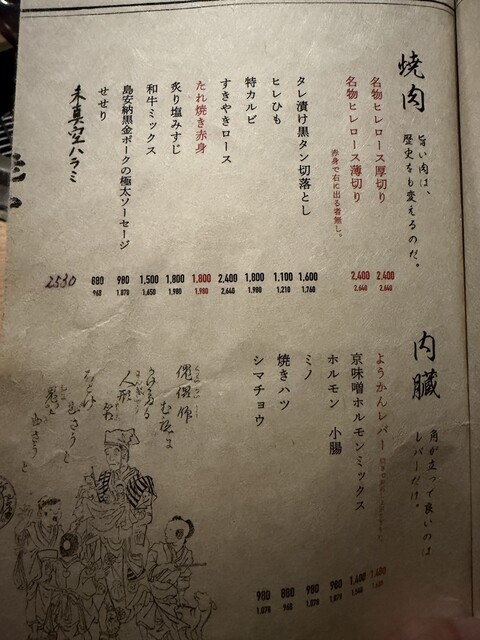 焼肉
旨い肉は、
歴史をも変えるのだ。
名物ヒレロース厚切り 2,400 2,640
名物ヒレロース薄切り 2,400 2,640
赤身で右に出る者無し。
タレ漬け黒タン切落とし 1,600 1,760
ヒレひも 1,100 1,210
特カルビ 1,800 1,980
すきやきロース 2,400 2,640
たれ焼き赤身 1,800 1,980
炙り塩みすじ 1,800 1,980
和牛ミックス 1,500 1,650
島安納黒金ポークの極太ソーセージ 980 1,078
せせり 880 968
未真空ハラミ 2530
内臓
角が立って良いのは
レバーだけ。
ようかんレバー 1,400
京味噌ホルモンミックス 1,400 1,540
ホルモン 小腸 980 1,078
ミノ 980 1,078
焼きハツ 880 968
シマチョウ 980 1,078
傀儡師